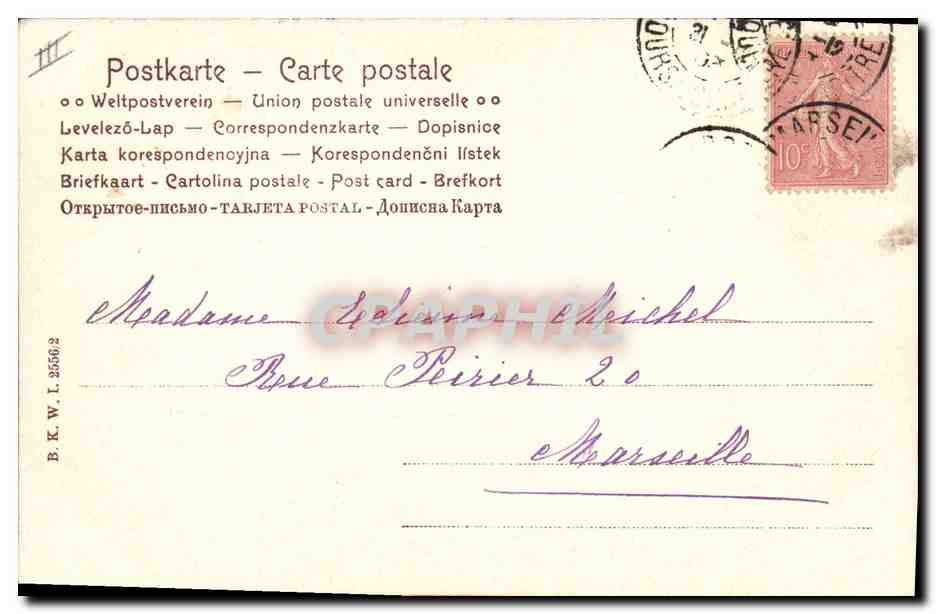 III
Postkarte – Carte postale
Weltpostverein — Union postale universelle
Levelező-Lap — Correspondenzkarte — Dopisnice
Karta korespondencyjna — Korespondenčni lístek
Briefkaart - Cartolina postale - Post card - Brefkort
Открытое-письмо - TARJETA POSTAL - Дописна Карта
10c
MARSEI
CPAPHIL
Madame Michel
Rue Peirier 20
Marseille
B. K. W. I. 2556/2